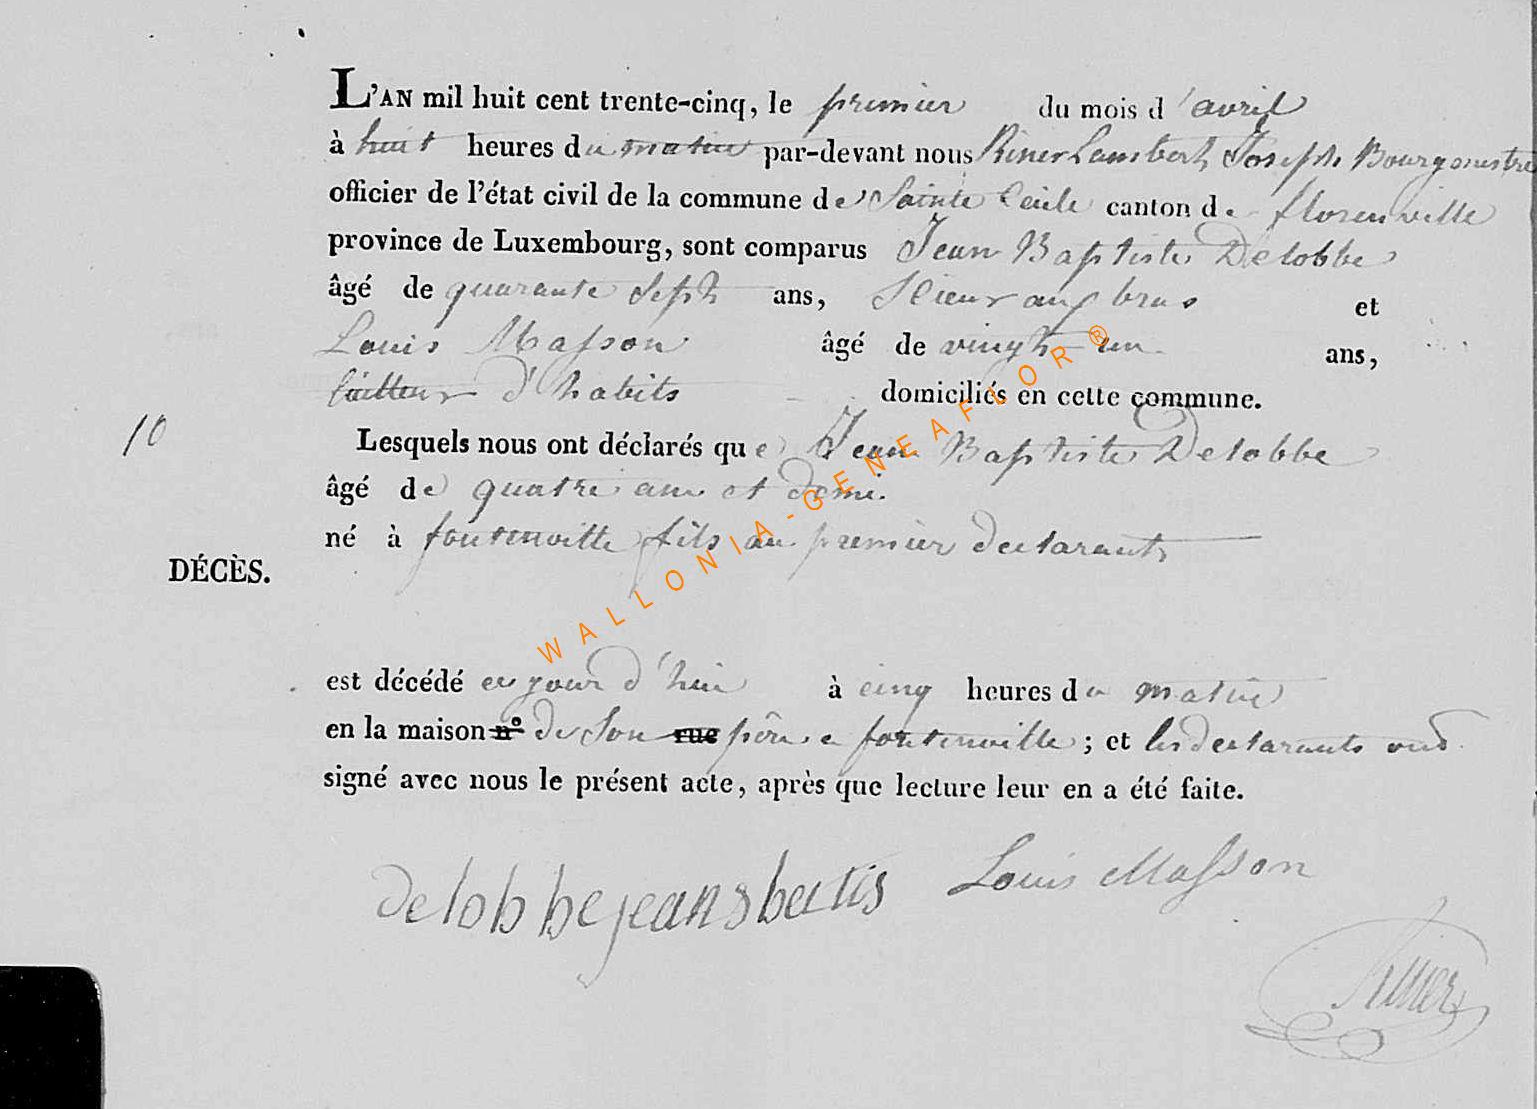 L'AN mil huit cent trente-cinq, le premier du mois d'avril
à huit heures du matin par-devant nous Riner Lambert Joseph Bourgmestre
officier de l'état civil de la commune de Sainte Cecile canton de florenville
province de Luxembourg, sont comparus Jean Baptiste Delobbe
âgé de quarante Sept ans, Scieur aux bras et
Louis Masson âgé de vingt un ans,
tailleur d'habits domiciliés en cette commune.
10
Lesquels nous ont déclarés que Jean Baptiste Delobbe
âgé de quatre ans et demi.
né à fontenoille fils du premier declarant
DÉCÈS.
est décédé ce jour d'hui à cinq heures du matin
en la maison n° de Son rue père a fontenoille ; et les declarants ont
signé avec nous le présent acte, après que lecture leur en a été faite.
Delobbe jean batis Louis Masson
Riner
WALLONIA-GENEAFLOR®